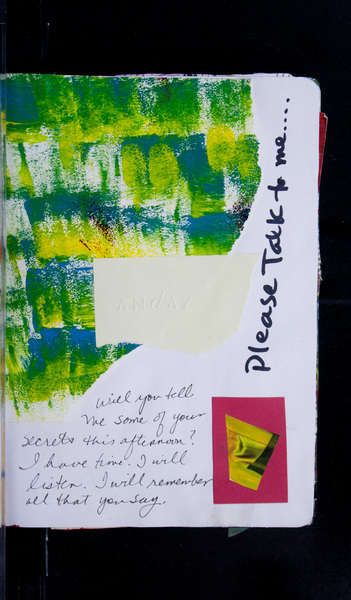 Please Talk to me....
ANDAZ
Will you tell
me some of your
secrets this afternoon?
I have time. I will
listen. I will remember
all that you say.